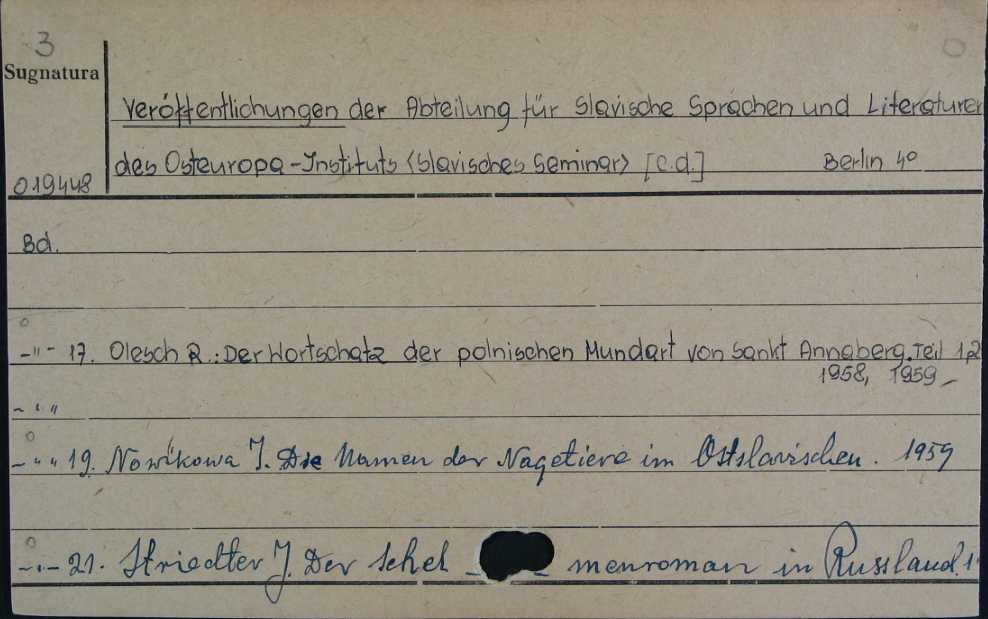 3
Sugnatura
Veröffentlichungen der Abteilung für Slavische Sprachen und Literaturen
des Osteuropa-Instituts <Slavisches Seminar> [c.d.] Berlin 4°
019448
Bd.
-"- 17. Olesch R.: Der Wortschatz der polnischen Mundart von Sankt Annaberg. Teil 1,2
1958, 1959
- " "
- " " 19. Nowikowa J. Die Namen der Nagetiere im Ostslavischen. 1959
-"- 21. Striedter J. Der Schel - - menroman in Russland. 1